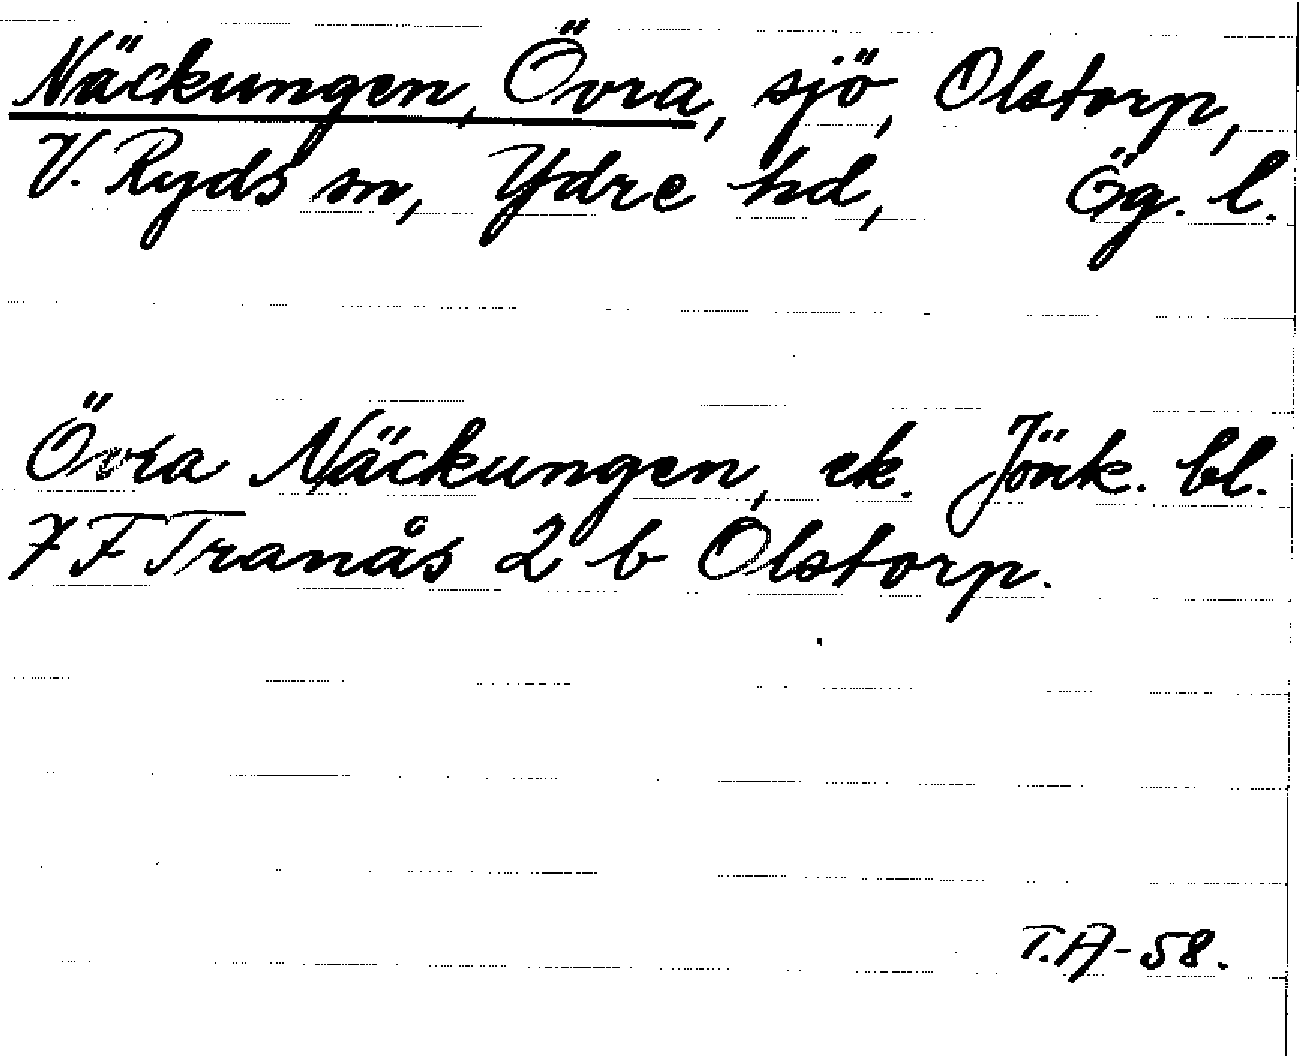 Näckungen, Övra, sjö, Olstorp,
V. Ryds sn, Ydre hd, Ög. l.
Övra Näckungen, ek. Jönk. bl.
7 F Tranås 2 b Olstorp.
T.A-58.